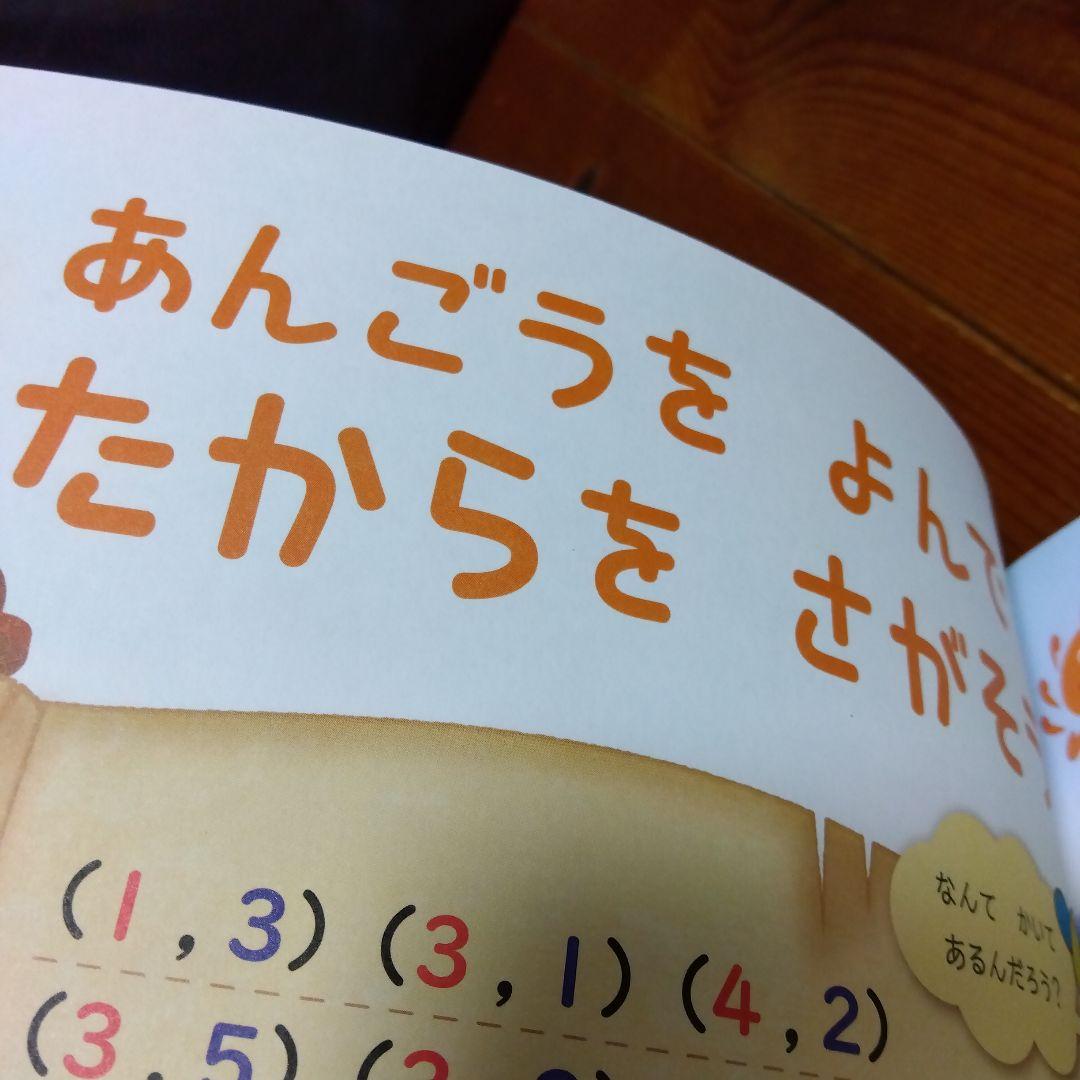 あんごうを よんで
たからを さがそう
なんて かいて
あるんだろう?
(1,3)(3,1)(4,2)
(3,5)